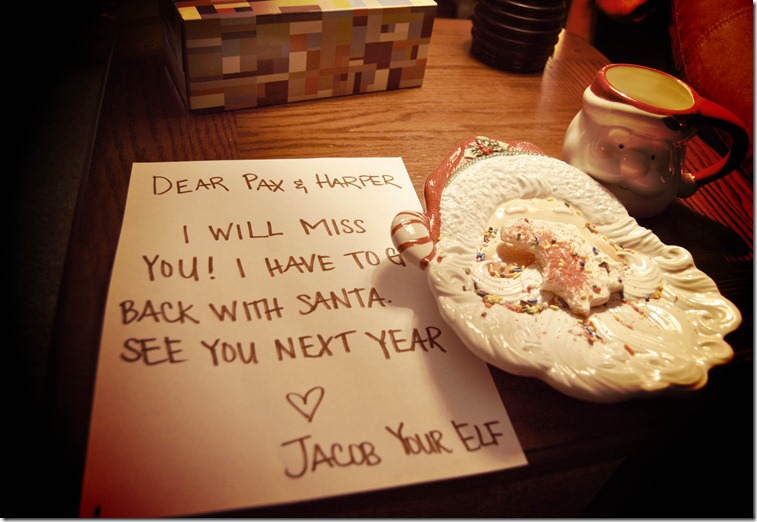 DEAR PAX & HARPER
I WILL MISS
YOU! I HAVE TO G
BACK WITH SANTA.
SEE YOU NEXT YEAR
♡
JACOB YOUR ELF